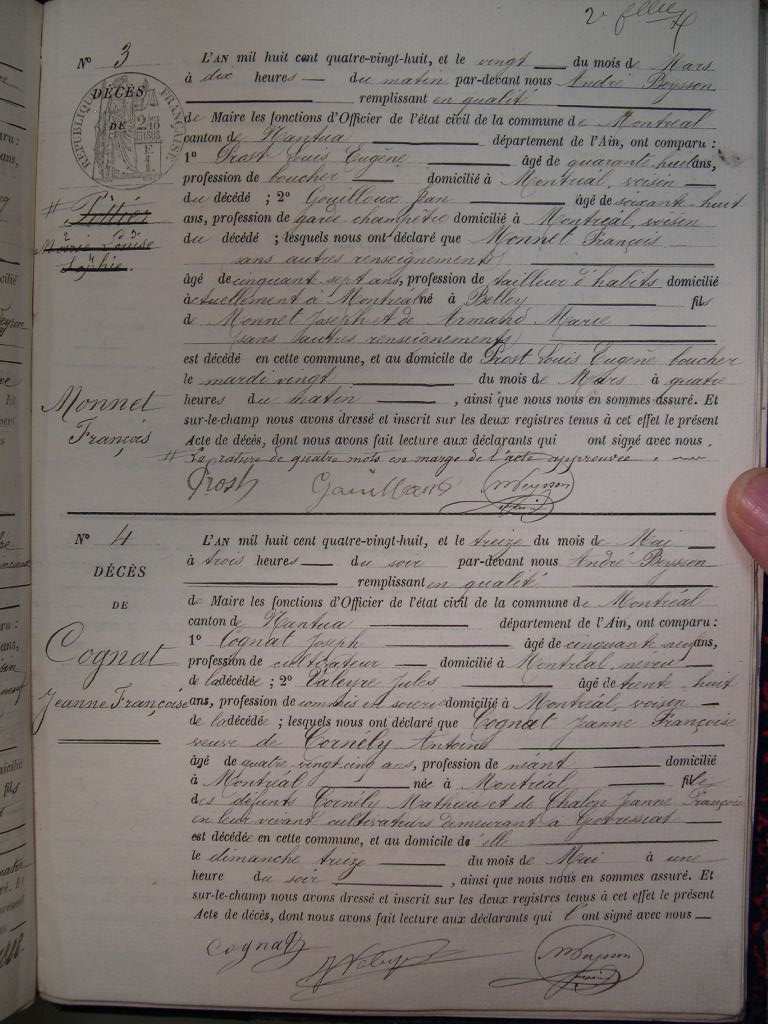 2e
Nº 3
DÉCÈS
DE
RÉPUBLIQUE FRANÇAISE
L'AN mil huit cent quatre-vingt-huit, et le vingt du mois de Mars
à dix heures du matin par-devant nous André Peysson
remplissant en qualité
de Maire les fonctions d'Officier de l'état civil de la commune de Montréal
canton de Nantua département de l'Ain, ont comparu :
1º Prost Louis Eugène âgé de quarante huit ans,
profession de boucher domicilié à Montréal, voisin
du décédé ; 2º Gouilloux Jean âgé de soixante-huit
ans, profession de garde champêtre domicilié à Montréal, voisin
du décédé ; lesquels nous ont déclaré que Monnet François
sans autres renseignements
âgé de cinquant sept ans, profession de tailleur d'habits domicilié
actuellement à Montréal né à Belley fils
de Monnet Joseph et de Armand Marie
sans autres renseignements
est décédé en cette commune, et au domicile de Prost Louis Eugène boucher
le mardi vingt du mois de Mars à quatre
heures du matin , ainsi que nous nous en sommes assuré. Et
sur-le-champ nous avons dressé et inscrit sur les deux registres tenus à cet effet le présent
Acte de décès, dont nous avons fait lecture aux déclarants qui ont signé avec nous.
# La rature de quatre mots en marge de l'acte approuvée.
Louise
Sophie.
Monnet
François
Prost Peysson
Nº 4
DÉCÈS
DE
Cognat
Jeanne Françoise
L'AN mil huit cent quatre-vingt-huit, et le treize du mois de Mai
à trois heures du soir par-devant nous André Peysson
remplissant en qualité
de Maire les fonctions d'Officier de l'état civil de la commune de Montréal
canton de Nantua département de l'Ain, ont comparu :
1º Cognat Joseph âgé de cinquante ans,
profession de cultivateur domicilié à Montréal neveu
de la décédée ; 2º Valeyre Jules âgé de trente-huit
ans, profession de commis en domicilié à Montréal, voisin
de la décédée ; lesquels nous ont déclaré que Cognat Jeanne Françoise
veuve de Cornély Antoine
âgé de quatre vingt cinq ans, profession de néant domicilié
à Montréal née à Montréal fille
des défunts Cornély Mathieu et de Chalon Jeanne Françoise
en leur vivant cultivateurs demeurant à Géovressiat
est décédée en cette commune, et au domicile d'elle
le dimanche treize du mois de Mai à une
heure du soir , ainsi que nous nous en sommes assuré. Et
sur-le-champ nous avons dressé et inscrit sur les deux registres tenus à cet effet le présent
Acte de décès, dont nous avons fait lecture aux déclarants qui l'ont signé avec nous
Cognat Peysson